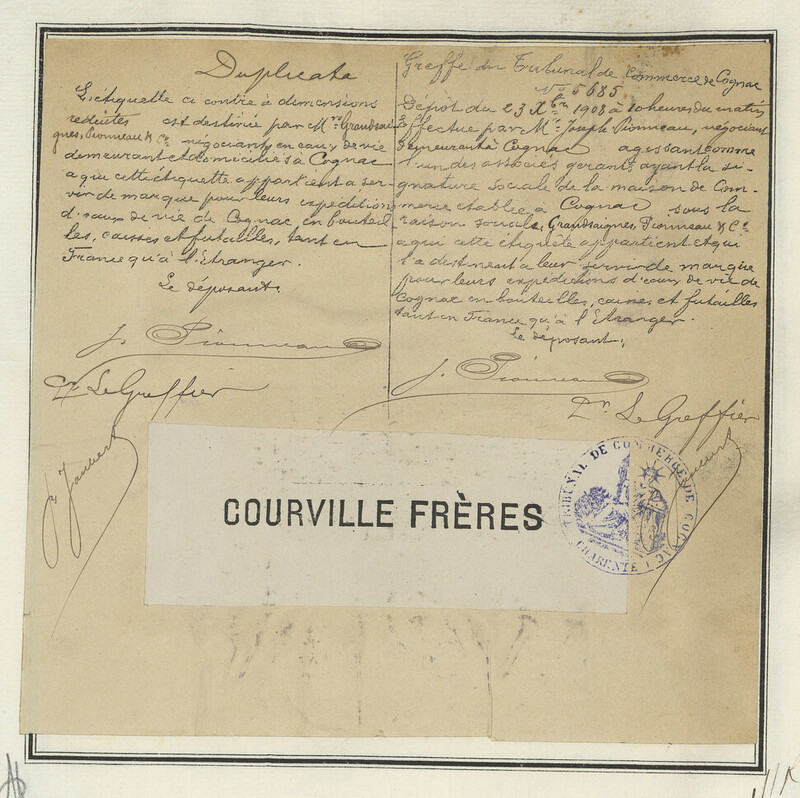 Duplicata
L'étiquette ci contre à dimensions
réduites est destinée par Mrs Grandsai-
gnes, Pionneau & Cie négociants en eaux de vie
demeurant et domiciliés à Cognac
a qui cette étiquette appartient a ser-
vir de marque pour leurs expéditions
d'eaux de vie de Cognac en bouteil-
les, caisses et futailles, tant en
France qu'à l'Etranger.
Le déposant.
J. Pionneau
Le Greffier
Joubert
Greffe du Tribunal de Commerce de Cognac
No 5685
Dépôt du 23 Xbre 1908 à 10 heures du matin
Effectué par Mr Joseph Pionneau, négociant
demeurant à Cognac agissant comme
l'un des associés gérants ayant la si-
gnature sociale de la maison de Com-
merce établie à Cognac sous la
raison sociale, Grandsaignes, Pionneau & Cie
a qui cette étiquette appartient et qui
la destinent a leur servir de marque
pour leurs expéditions d'eaux de vie de
Cognac en bouteilles, caisses et futailles
tant en France qu'à l'Etranger.
Le déposant,
J. Pionneau
Le Greffier
COURVILLE FRÈRES
TRIBUNAL DE COMMERCE DE COGNAC
CHARENTE